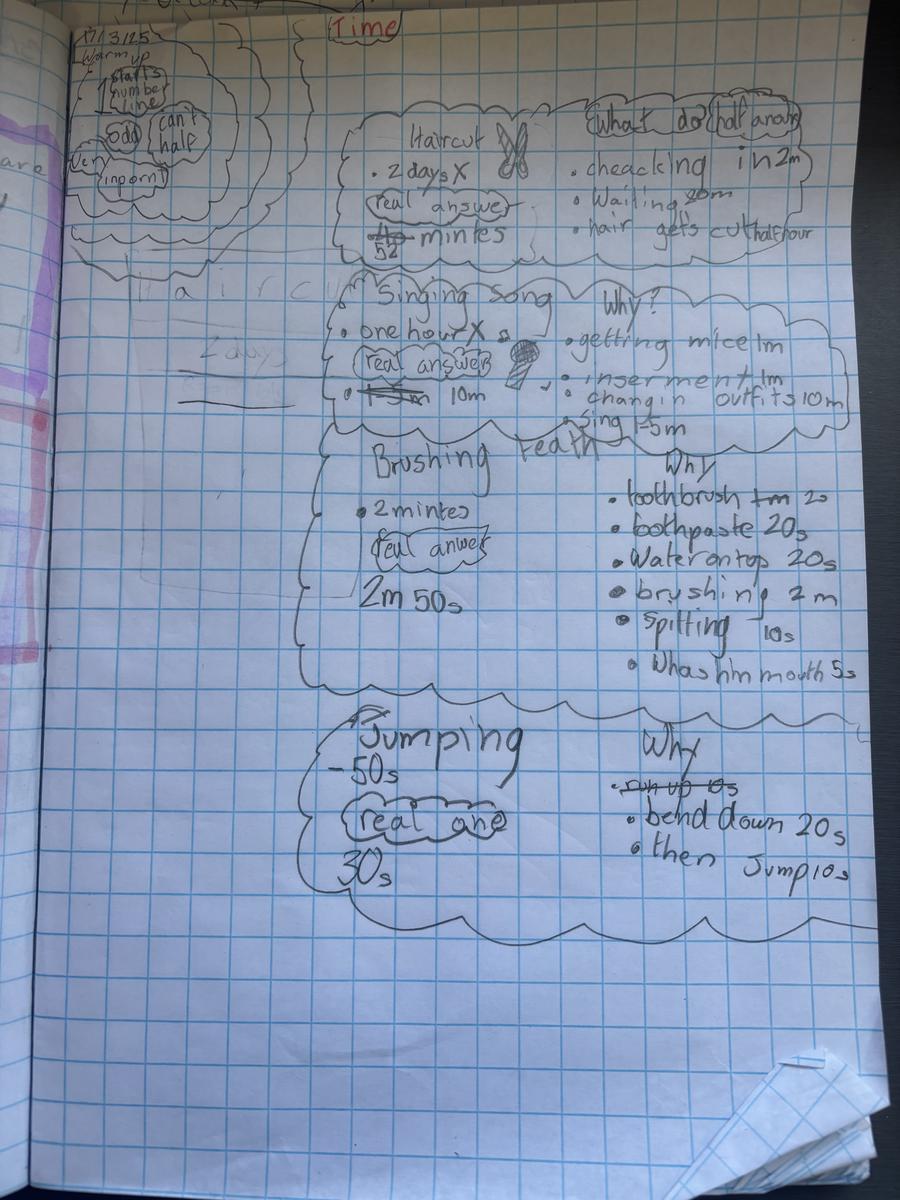 Time
17/3/25
Warm up
1
starts
number
line
odd
can't
half
very
inpornt
Haircut
• 2 days X
real answer
40
52 mintes
What do half anour
• cheacking in 2m
• Waiting 20m
• hair gets cut half hour
Haircu
2 days
Singing song
• one hour X
real answer
• 1-5m 10m
Why?
• getting mice 1m
• inserment 1m
• changin outfits 10m
• Sing 1-5m
Brushing teath
• 2 mintes
real anwer
2m 50s
Why
• toothbrush 1m 2s
• toothpaste 20s
• Water on top 20s
• brushing 2m
• spitting 10s
• Whashin mouth 5s
Jumping
- 50s
real one
30s
Why
• run up 10s
• bend down 20s
• then Jump 10s